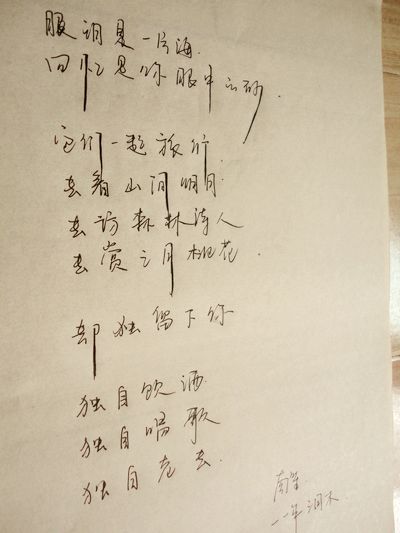 眼泪是一片海.
回忆是你眼中的砂.
它们一起旅行
去看山间明月.
去访森林诗人
去赏三月桃花.
却独留下你
独自饮酒.
独自唱歌
独自老去.
一一年